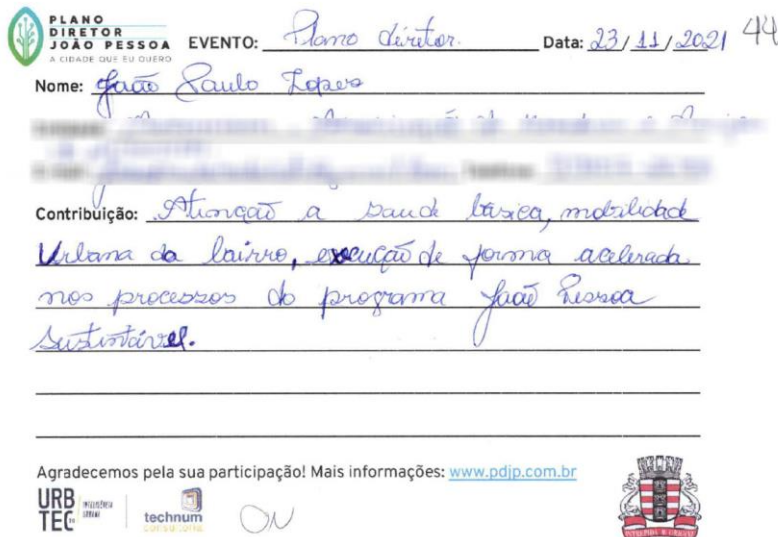 PLANO
DIRETOR
JOÃO PESSOA
A CIDADE QUE EU QUERO
EVENTO: Plano diretor. Data: 23/11/2021 44
Nome: João Paulo Lopes
Contribuição: Atenção a saude básica, mobilidade
Urbana do bairro, execução de forma acelerada
nos processos do programa João Pessoa
Sustentável.
Agradecemos pela sua participação! Mais informações: www.pdjp.com.br
URB
TEC
INTELIGÊNCIA
URBANA
technum
consultoria
ON
INTREPIDA AB ORIGINE